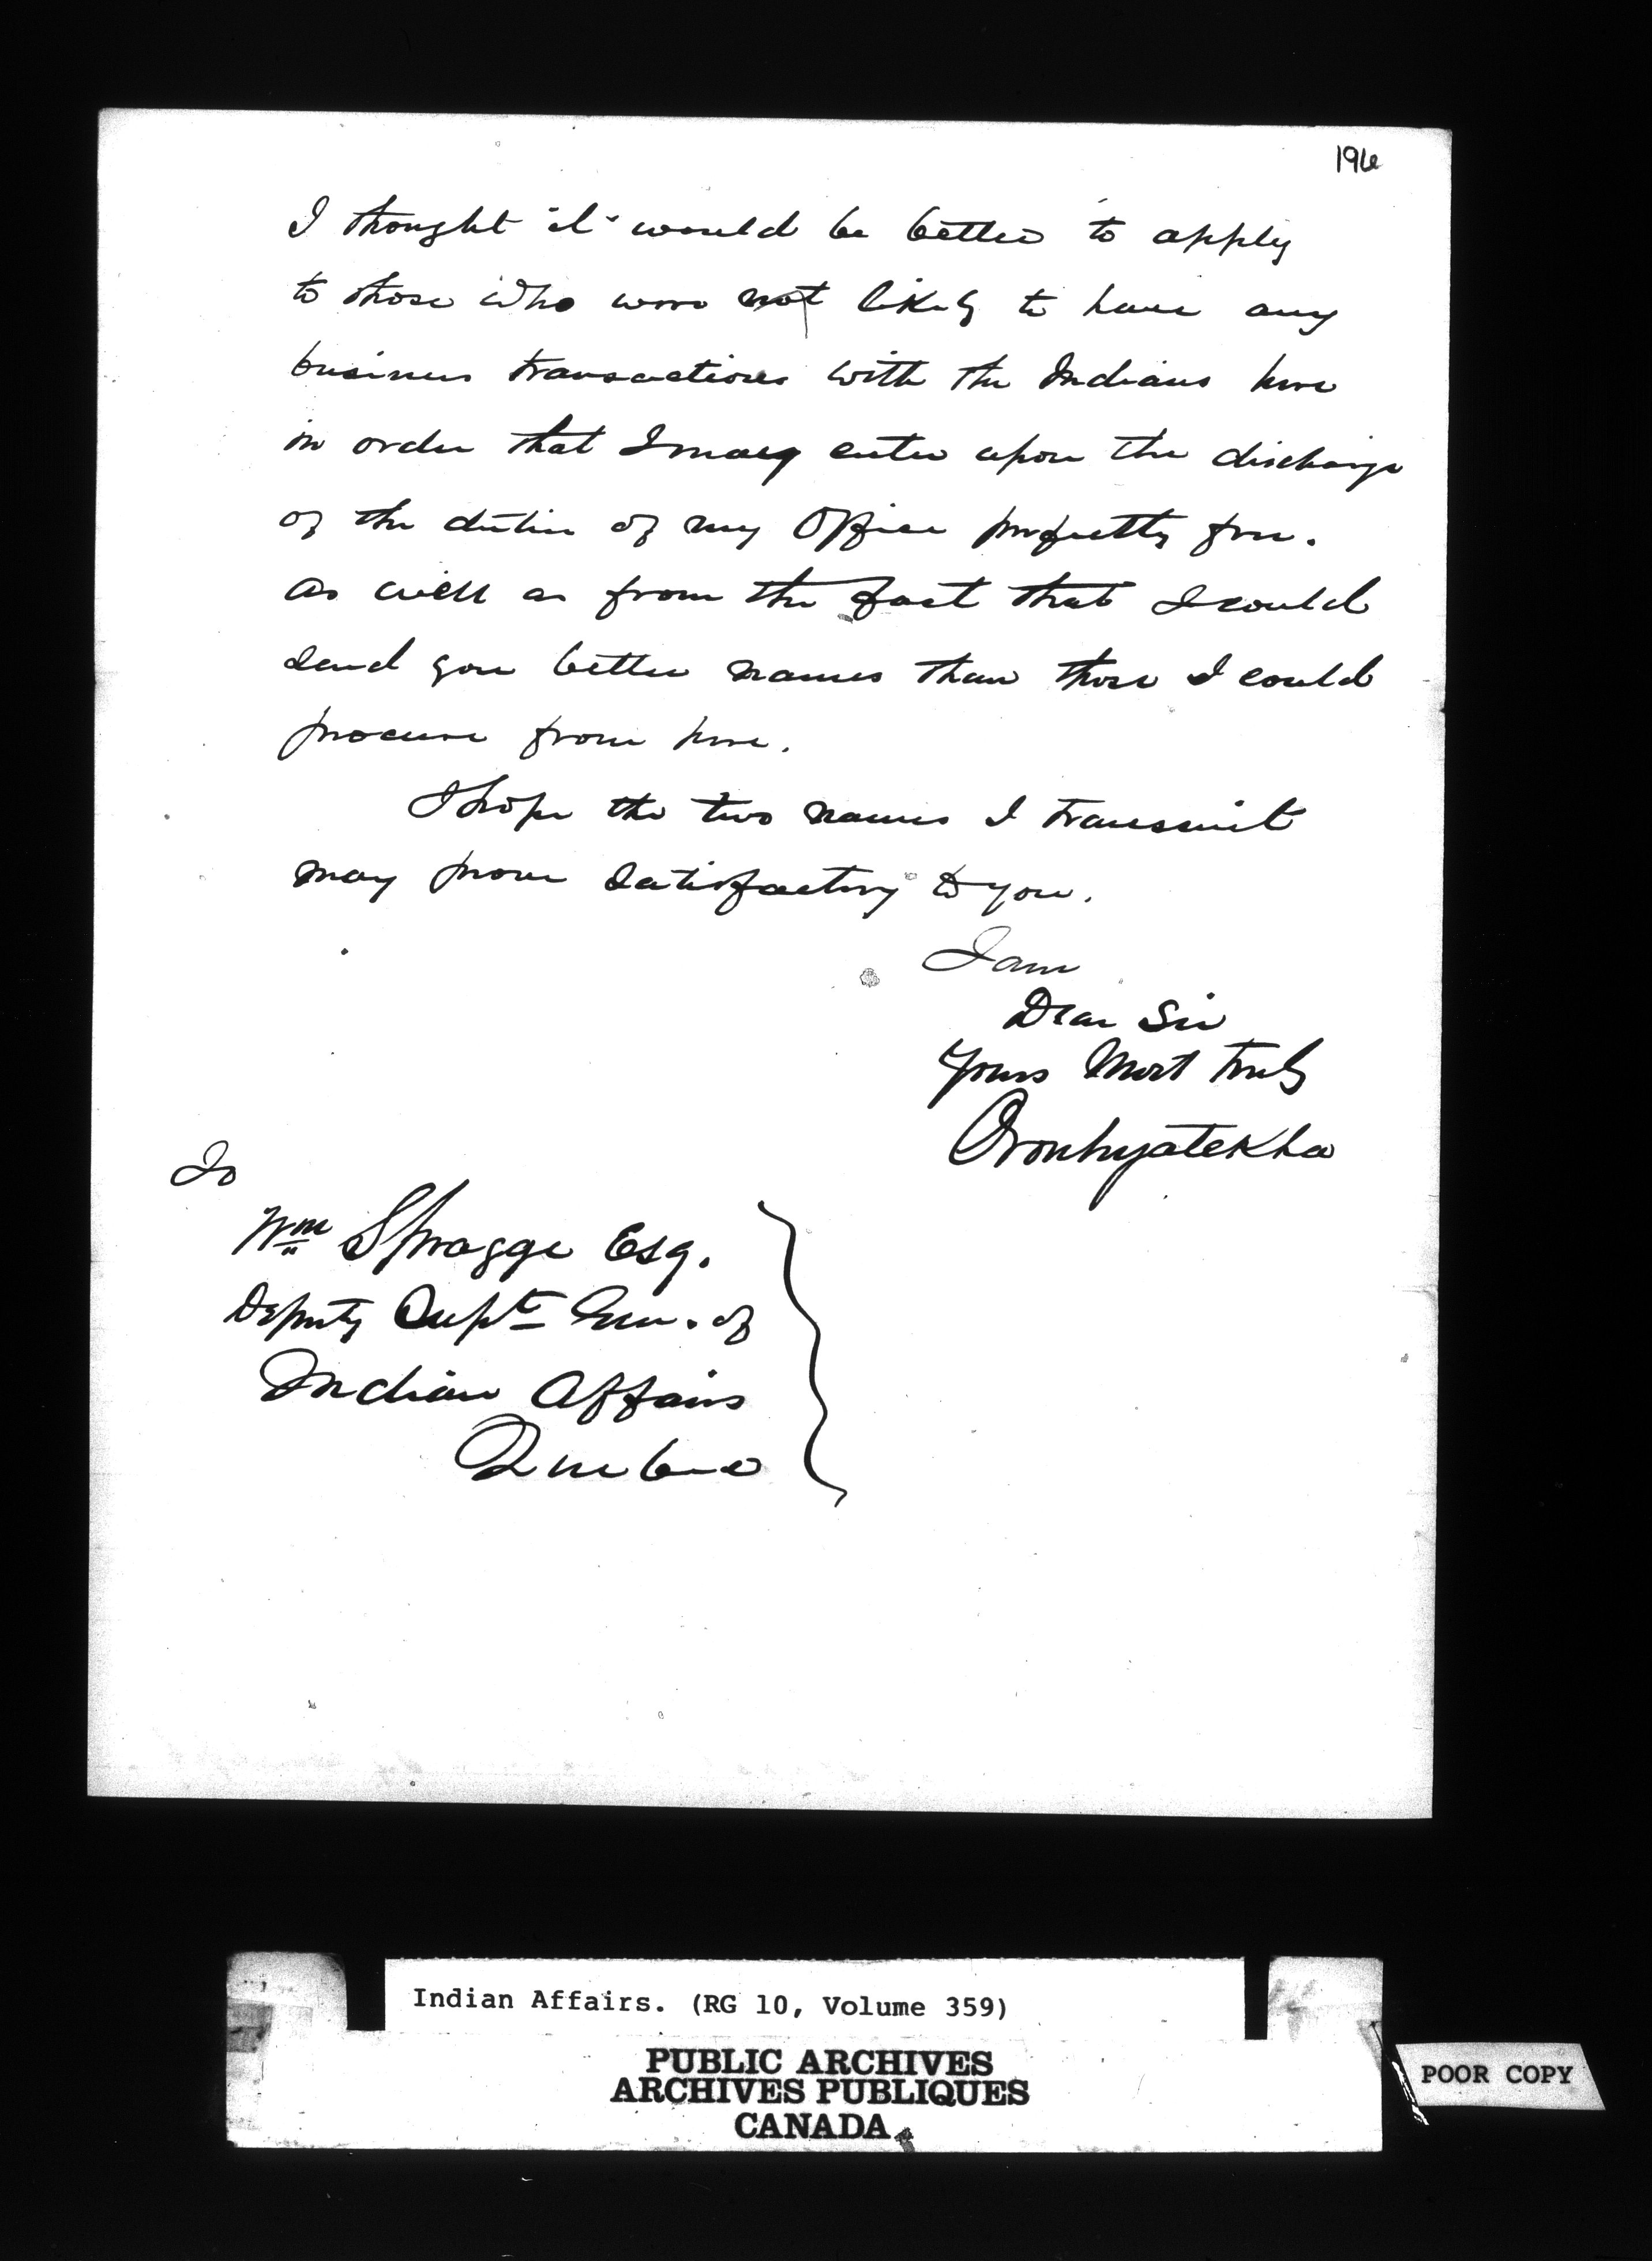 196
I thought it would be better to apply
to those who were not likely to have any
business transactions with the Indians here
in order that I may enter upon the discharge
of the duties of my Office perfectly free.
as well as from the fact that I could
send you better names than those I could
procure from here.
I hope the two names I transmit
may prove satisfactory to you.
I am
Dear Sir
Yours Most truly
Oronhyatekha
To
Wm Spragge Esq.
Deputy Supt Gen. of
Indian Affairs
Quebec
Indian Affairs. (RG 10, Volume 359)
PUBLIC ARCHIVES
ARCHIVES PUBLIQUES
CANADA
POOR COPY